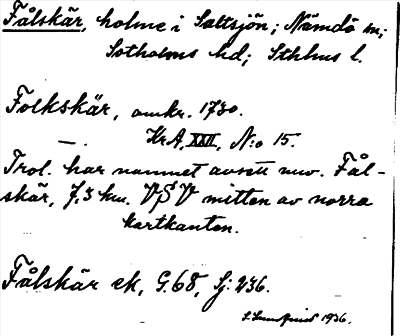 Fålskär, holme i Saltsjön; Nämdö sn;
Sotholms hd; Sthlms l.
Folkskär, omkr. 1730.
—. KrA, XXII, N:o 15.
Trol. har namnet avsett nuv. Fål-
skär, 7,3 km. VSV mitten av norra
kartkanten.
Fålskär ek, G.68, Sj: 236.
1936.